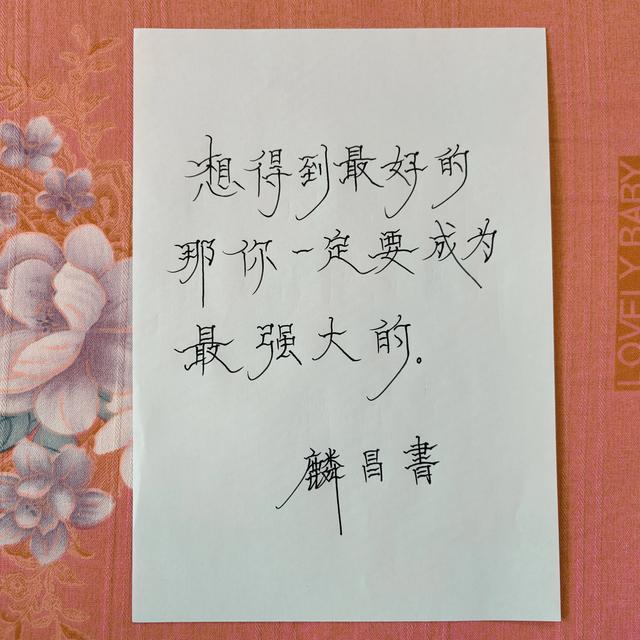 想得到最好的
那你一定要成为
最强大的。
麟昌書
LOVELY BABY